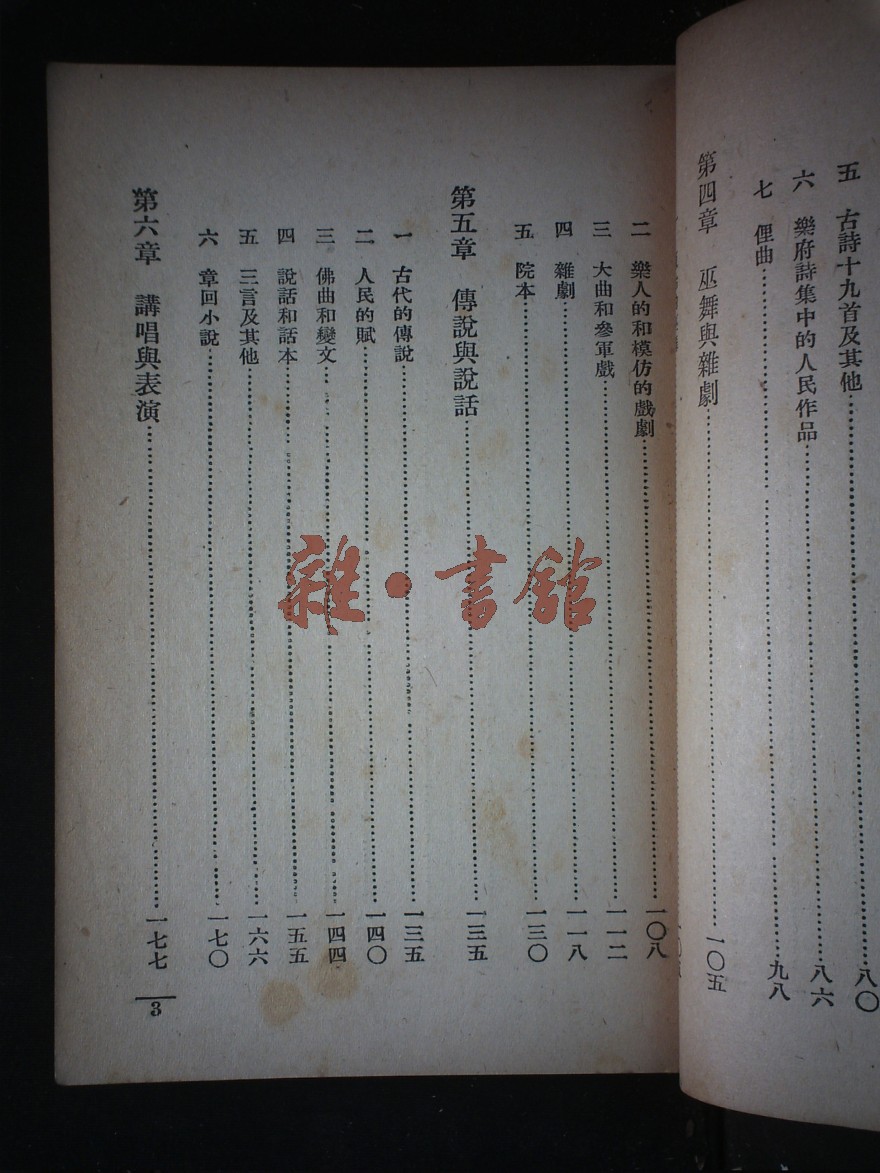 五 古詩十九首及其他……八〇
六 樂府詩集中的人民作品……八六
七 俚曲……九八
第四章 巫舞與雜劇……一〇五
二 樂人的和模仿的戲劇……一〇八
三 大曲和參軍戲……一一二
四 雜劇……一一八
五 院本……一三〇
第五章 傳說與說話……一三五
一 古代的傳說……一三五
二 人民的賦……一四〇
三 佛曲和變文……一四四
四 說話和話本……一五五
五 三言及其他……一六六
六 章回小說……一七〇
第六章 講唱與表演……一七七
3
雜·書館